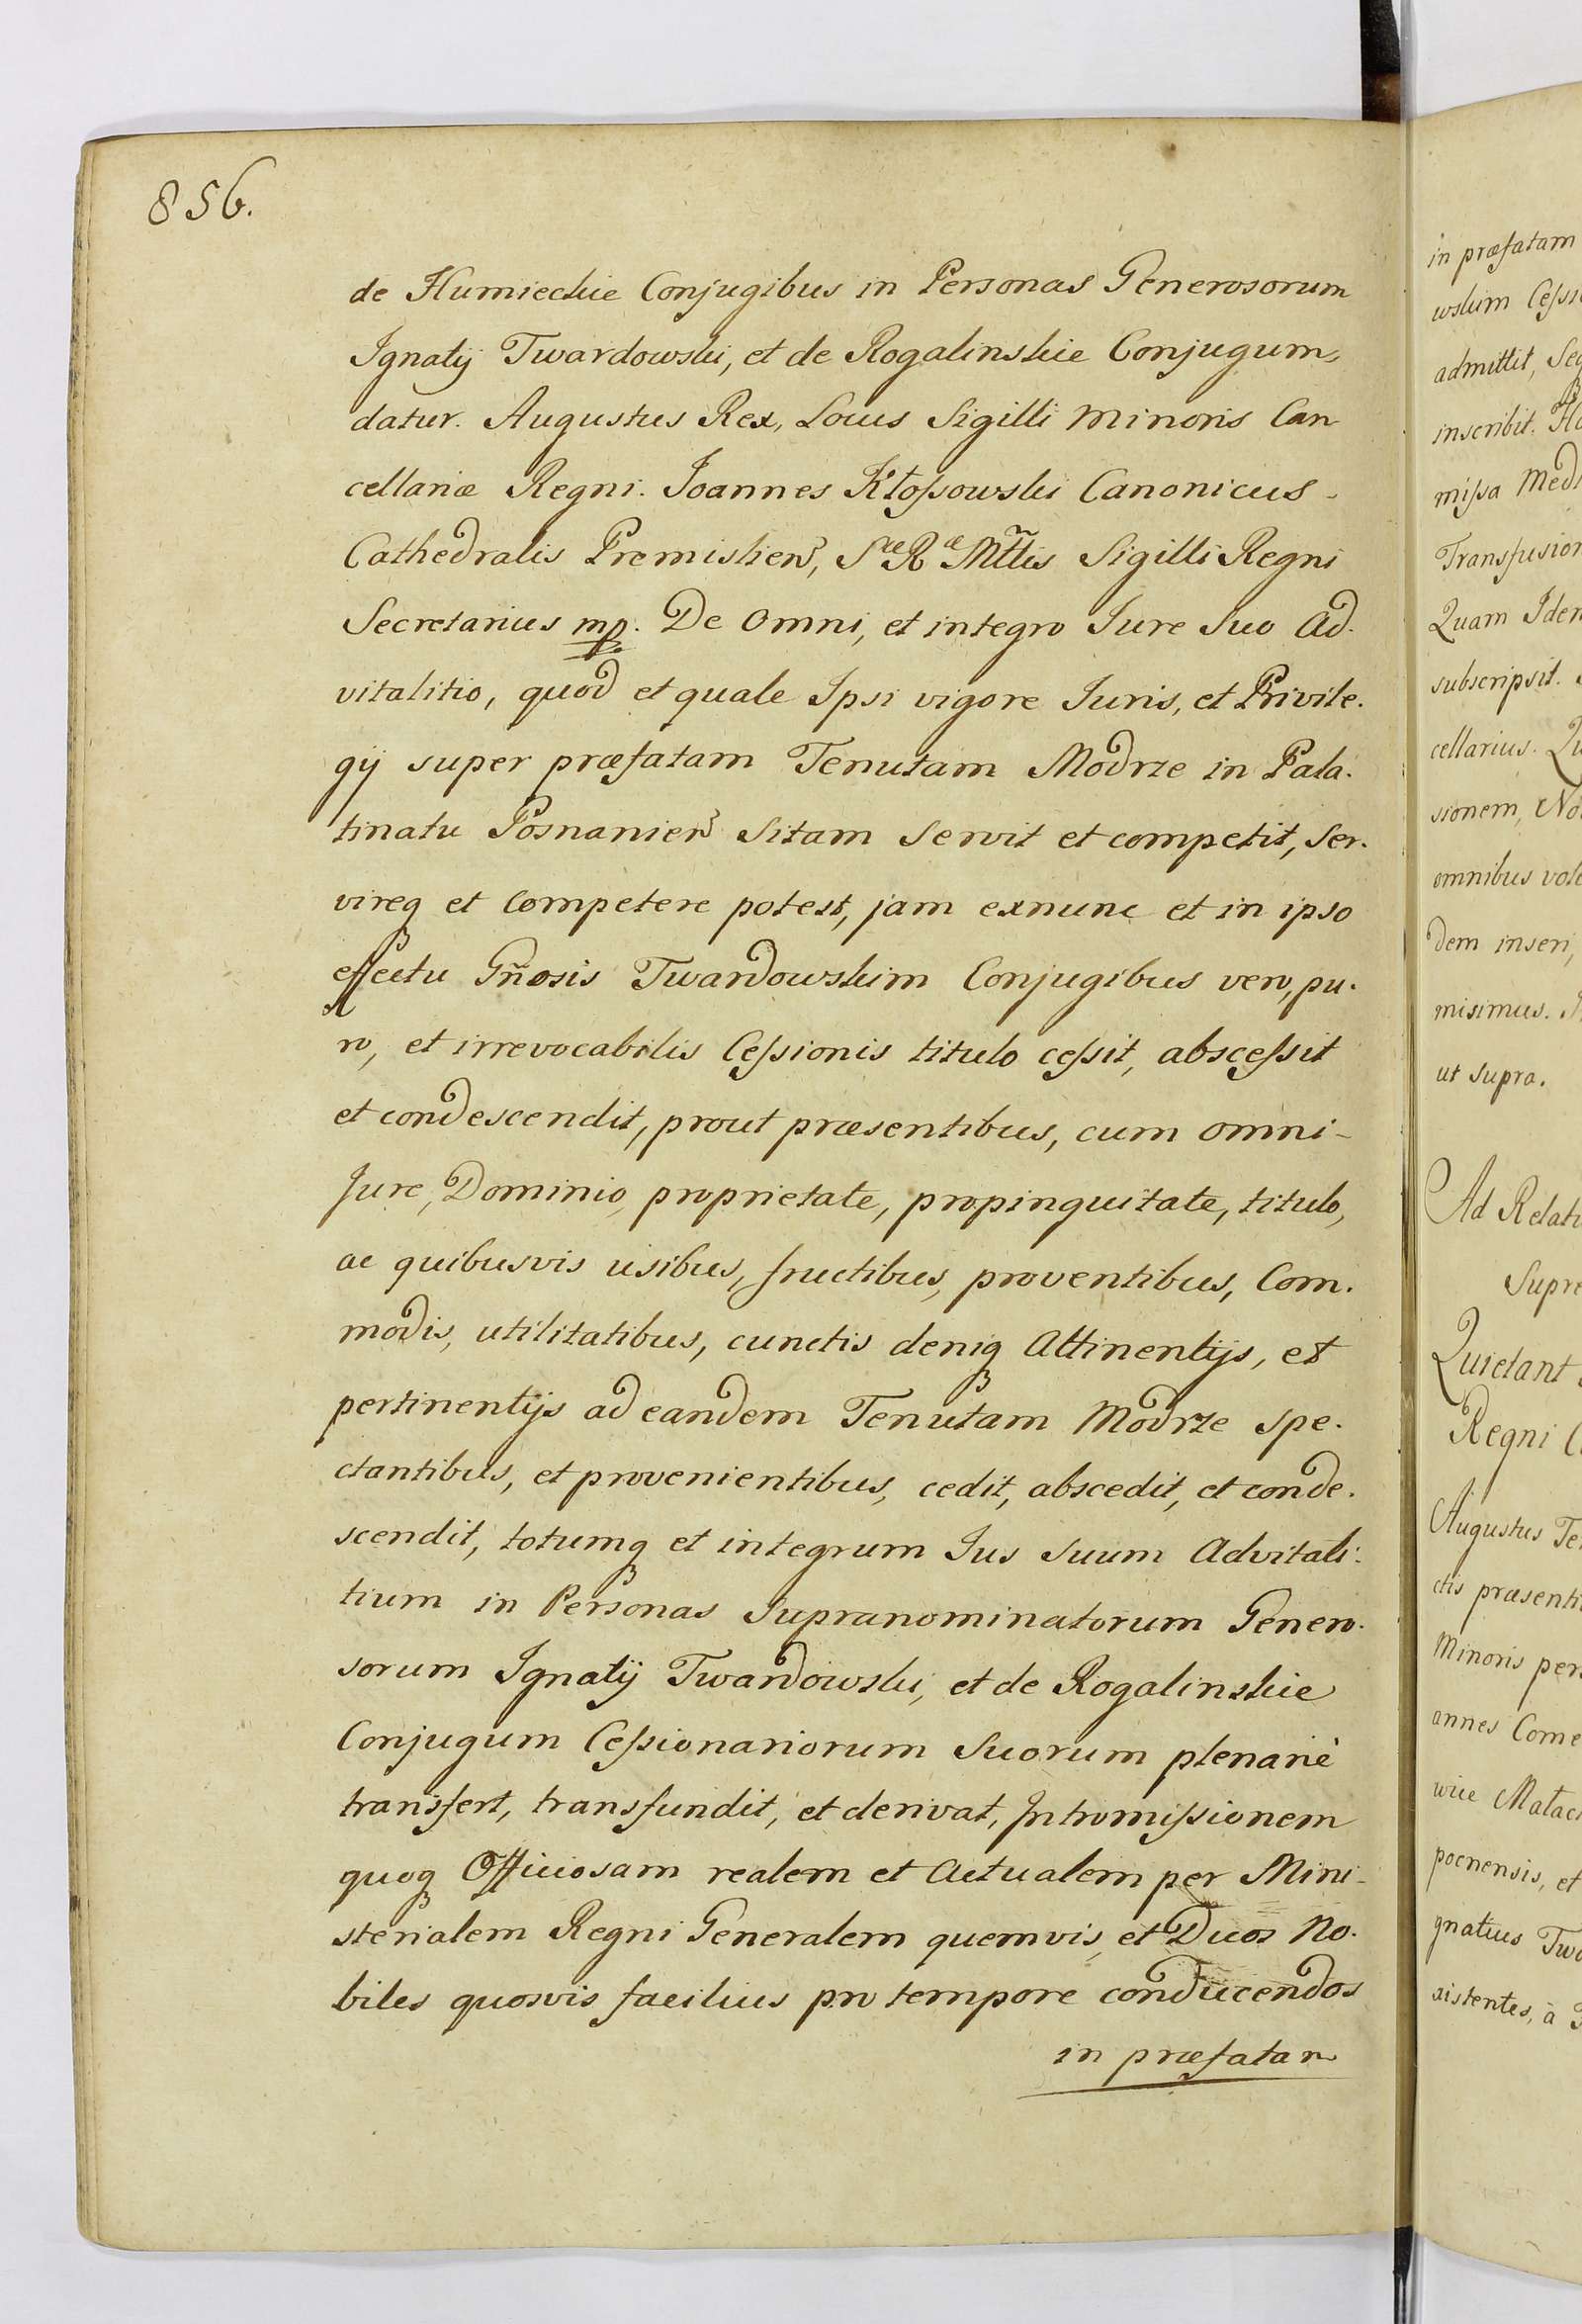 856.
de Humieckie Conjugibus in Personas Generosorum
Ignatij Twardowski, et de Rogalinskie Conjugum,
datur. Augustus Rex, Locus Sigilli Minoris Can
cellariæ Regni. Joannes Kłossowski Canonicus
Cathedralis Premislien, Sæ Ræ Mttis Sigilli Regni
Secretarius mp. De Omni, et integro Jure Suo Ad-
vitalitio, quod et quale Ipsi vigore Juris, et Privile-
gij super præfatam Tenutam Modrze in Pala-
tinatu Posnanien Sitam Servit et competit, Ser-
vireq et Competere potest, jam exnunc et in ipso
effectu Gnosis Twardowskim Conjugibus vero, pu-
ro, et irrevocabilis Cessionis titulo cessit, abscessit
et condescendit, prout præsentibus, cum omni-
Jure, Dominio, proprietate, propinquitate, titulo,
ac quibusvis usibus, fructibus, proventibus, Com-
modis, utilitatibus, cunctis deniq Attinentijs, et
pertinentijs ad eandem Tenutam Modrze spe-
ctantibus, et provenientibus, cedit, abscedit, et conde-
scendit, totumq et integrum Jus Suum Advitali-
tium in Personas Supranominatorum Genero-
sorum Ignatij Twardowski, et de Rogalinskie
Conjugum Cessionariorum Suorum plenariè
transfert, transfundit, et derivat, Intromissionem
quoq Officiosam realem et Actualem per Mini-
sterialem Regni Generalem quemvis, et Duos No-
biles quosvis facilius pro tempore conducendos
in præfatam
in præfatam
wskim Cessi
admittit, Seq
inscribit.
missa Medi
Transfusion
Quam Idem
subscripsit.
cellarius. Qu
sionem, No
omnibus vole
dem inseri,
misimus.
ut supra.
Ad Relati
Supre
Quietant
Regni C
Augustus Te
ctis præsenti
Minoris per
annes Come
wice Małac
pocnensis, et
gnatius Twa
xistentes, à